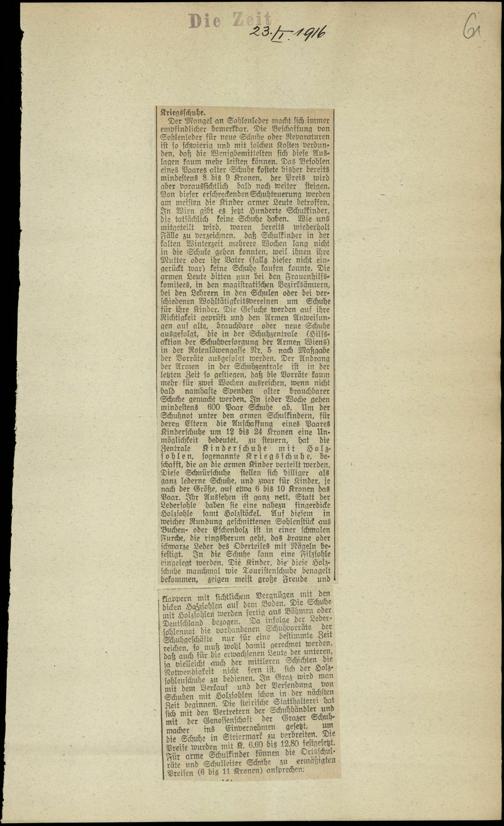 Die Zeit
23./I. 1916
61
Kriegsschuhe.
Der Mangel an Sohlenleder macht sich immer
empfindlicher bemerkbar. Die Beschaffung von
Sohlenleder für neue Schuhe oder Reparaturen
ist so schwierig und mit solchen Kosten verbun-
den, daß die Wenigbemittelten sich diese Aus-
lagen kaum mehr leisten können. Das Besohlen
eines Paares alter Schuhe kostete bisher bereits
mindestens 8 bis 9 Kronen, der Preis wird
aber voraussichtlich bald noch weiter steigen.
Von dieser erschreckenden Schuhteuerung werden
am meisten die Kinder armer Leute betroffen.
In Wien gibt es jetzt Hunderte Schulkinder,
die tatsächlich keine Schuhe haben. Wie uns
mitgeteilt wird, waren bereits wiederholt
Fälle zu verzeichnen, daß Schulkinder in der
kalten Winterzeit mehrere Wochen lang nicht
in die Schule gehen konnten, weil ihnen ihre
Mutter oder ihr Vater (falls dieser nicht ein-
gerückt war) keine Schuhe kaufen konnte. Die
armen Leute bitten nun bei den Frauenhilfs-
komitees, in den magistratischen Bezirksämtern,
bei den Lehrern in den Schulen oder bei ver-
schiedenen Wohltätigkeitsvereinen um Schuhe
für ihre Kinder. Die Gesuche werden auf ihre
Richtigkeit geprüft und den Armen Anweisun-
gen auf alte, brauchbare oder neue Schuhe
ausgefolgt, die in der Schuhzentrale (Hilfs-
aktion der Schuhversorgung der Armen Wiens)
in der Rotenlöwengasse Nr. 5 nach Maßgabe
der Vorräte ausgefolgt werden. Der Andrang
der Armen in der Schuhzentrale ist in der
letzten Zeit so gestiegen, daß die Vorräte kaum
mehr für zwei Wochen ausreichen, wenn nicht
bald namhafte Spenden alter brauchbarer
Schuhe gemacht werden. In jeder Woche gehen
mindestens 600 Paar Schuhe ab. Um der
Schuhnot unter den armen Schulkindern, für
deren Eltern die Anschaffung eines Paares
Kinderschuhe um 12 bis 24 Kronen eine Un-
möglichkeit bedeutet, zu steuern, hat die
Zentrale Kinderschuhe mit Holz-
sohlen, sogenannte Kriegsschuhe, be-
schafft, die an die armen Kinder verteilt werden.
Diese Schnürschuhe stellen sich billiger als
ganz lederne Schuhe, und zwar für Kinder, je
nach der Größe, auf etwa 6 bis 10 Kronen das
Paar. Ihr Aussehen ist ganz nett. Statt der
Ledersohle haben sie eine nahezu fingerdicke
Holzsohle samt Holzstöckel. Auf diesem in
weicher Rundung geschnittenen Sohlenstück aus
Buchen- oder Eschenholz ist in einer schmalen
Furche, die ringsherum geht, das braune oder
schwarze Leder des Oberteiles mit Nägeln be-
festigt. In die Schuhe kann eine Filzsohle
eingelegt werden. Die Kinder, die diese Holz-
schuhe manchmal wie Touristenschuhe benagelt
bekommen, zeigen meist große Freude und
klappern mit sichtlichem Vergnügen mit den
dicken Holzsohlen auf dem Boden. Die Schuhe
mit Holzsohlen werden fertig aus Böhmen oder
Deutschland bezogen. Da infolge der Leder-
sohlennot die vorhandenen Schuhvorräte der
Schuhgeschäfte nur für eine bestimmte Zeit
reichen, so muß wohl damit gerechnet werden,
daß auch für die erwachsenen Leute der unteren,
ja vielleicht auch der mittleren Schichten die
Notwendigkeit nicht fern ist, sich der Holz-
sohlenschuhe zu bedienen. In Graz wird man
mit dem Verkauf und der Versendung von
Schuhen mit Holzsohlen schon in der nächsten
Zeit beginnen. Die steirische Statthalterei hat
sich mit den Vertretern der Schuhhändler und
mit der Genossenschaft der Grazer Schuh-
macher ins Einvernehmen gesetzt, um
die Schuhe in Steiermark zu verbreiten. Die
Preise wurden mit K. 6.60 bis 12.80 festgesetzt.
Für arme Schulkinder können die Ortsschul-
räte und Schulleiter Schuhe zu ermäßigten
Preisen (6 bis 11 Kronen) ansprechen.